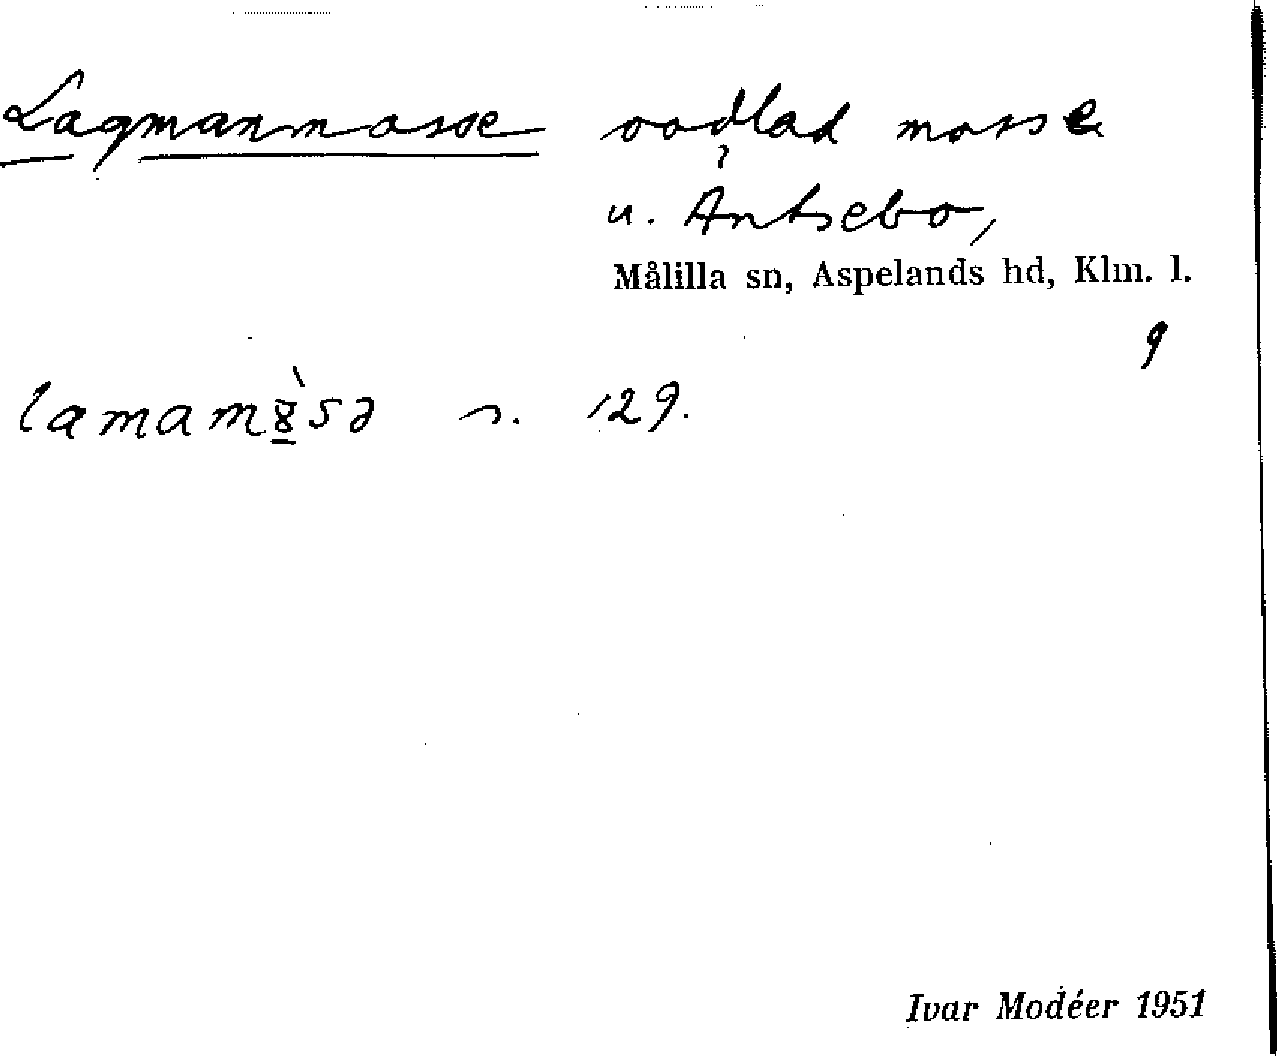 Lagmanmosse oodlad mosse
u. Antsebo,
Målilla sn, Aspelands hd, Klm. l.
9
lamam8̲̀sə s. 129.
Ivar Modéer 1951